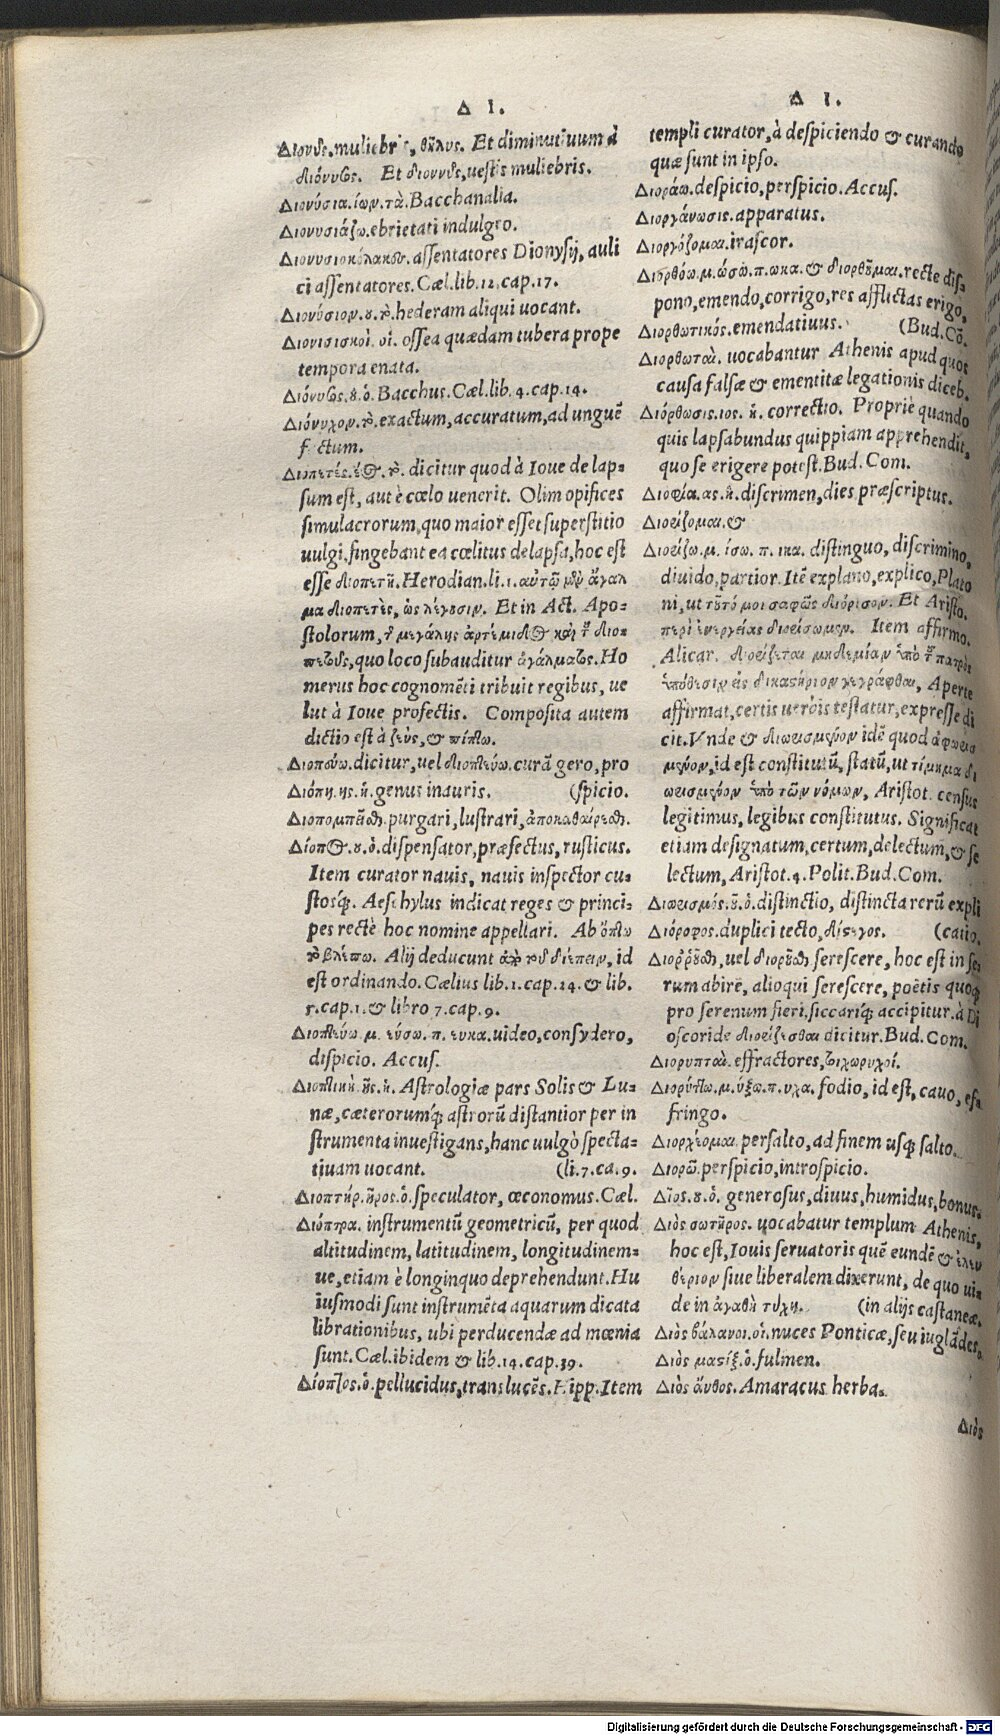 Δ I.
Διονῦς. muliebris, θῆλυς. Et diminutiuum à
διόνυσος. Et διοννῦς, uestis muliebris.
Διονύσια. ίων. τὰ. Bacchanalia.
Διονυσιάζω. ebrietati indulgeo.
Διονυσιοκόλακες. assentatores Dionysij, auli
ci assentatores. Cæl. lib. 12. cap. 17.
Διονύσιον. ου. τὸ. hederam aliqui uocant.
Διονισισκοὶ. οἱ. ossea quædam tubera prope
tempora enata.
Διόνυσος. ου. ὁ. Bacchus. Cæl. lib. 4. cap. 14.
Διόνυχον. τὸ. exactum, accuratum, ad unguē
f ctum.
Διοπετές. έος. τὸ. dicitur quod à Ioue delap-
sum est, aut è cœlo uenerit. Olim opifices
simulacrorum, quo maior esset superstitio
uulgi, fingebant ea cœlitus delapsa, hoc est
esse διοπετῆ. Herodian. li. 1. αυτῶ μὲν ἄγαλ
μα διοπετὲς, ὡς λέγουσιν. Et in Act. Apo-
stolorum, τῆς μεγάλης ἀρτέμιδος καὶ τοῦ διοπ
πετοῦς, quo loco subauditur ἀγάλματος. Ho
merus hoc cognomēti tribuit regibus, ue
lut à Ioue profectis. Composita autem
dictio est à ζεὺς, & πίπτω.
Διοπεύω. dicitur, uel διοπτεύω. curā gero, pro
Διόπη. ης. ἡ. genus inauris. (spicio.
Διοπομπεῖσθαι. purgari, lustrari, ἀποκαθαίρεσθαι.
Δίοπος. ου. ὁ. dispensator, præfectus, rusticus.
Item curator nauis, nauis inspector cu-
stosq́;. Aeschylus indicat reges & princi-
pes rectè hoc nomine appellari. Ab ὄπτω
τὸ βλέπω. Alij deducunt ἀπὸ τοῦ διέπειν, id
est ordinando. Cælius lib. 1. cap. 14. & lib.
5. cap. 1. & libro 7. cap. 9.
Διοπτεύω. μ. εύσω. π. ευκα. uideo, consydero,
dispicio. Accus.
Διοπτικὴ. ῆς. ἡ. Astrologiæ pars Solis & Lu-
næ, cæterorumq́; astrorū distantior per in
strumenta inuestigans, hanc uulgò specta-
tiuam uocant. (li. 7. ca. 9.
Διοπτήρ. ῆρος. ὁ. speculator, œconomus. Cæl.
Διόπτρα. instrumentū geometricū, per quod
altitudinem, latitudinem, longitudinem-
ue, etiam è longinquo deprehendunt. Hu
iusmodi sunt instrumēta aquarum dicata
librationibus, ubi perducendæ ad mœnia
sunt. Cæl. ibidem & lib. 14. cap. 39.
Δίοπτος. ὁ. pellucidus, translucēs. Hipp. Item
Δ I.
templi curator, à despiciendo & curando
quæ sunt in ipso.
Διοράω. despicio, perspicio. Accus.
Διοργάνωσις. apparatus.
Διοργίζομαι. irascor.
Διορθόω. μ. ώσω. π. ωκα. & διορθοῦμαι. recte dis-
pono, emendo, corrigo, res afflictas erigo,
Διορθωτικός. emendatiuus. (Bud. Cō.
Διορθωταὶ. uocabantur Athenis apud quos
causa falsæ & ementitæ legationis diceb.
Διόρθωσις. ιος. ἡ. correctio. Propriè quando
quis lapsabundus quippiam apprehendit,
quo se erigere potest. Bud. Com.
Διορία. ας. ἡ. discrimen, dies præscriptus.
Διορίζομαι. &
Διορίζω. μ. ίσω. π. ικα. distinguo, discrimino,
diuido, partior. Itē explano, explico, Plato
ni, ut τοῦτό μοι σαφῶς διόρισον. Et Aristo.
περὶ ἐνεργείας διορίσωμεν. Item affirmo.
Alicar. διορίζεται μηδεμίαν ὑπὸ τοῦ πατρὸς
ὑπόθεσιν εἰς δικαστήριον γεγράφθαι, Aperte
affirmat, certis uerbis testatur, expresse di
cit. Vnde & διωρισμένον idē quod ἀφωρισ
μένον, id est constitutū, statū, ut τίμημα δι
ωρισμένον ὑπὸ τῶν νόμων, Aristot. census
legitimus, legibus constitutus. Significat
etiam designatum, certum, delectum, & se
lectum, Aristot. 4. Polit. Bud. Com.
Διωρισμός. οῦ. ὁ. distinctio, distincta rerū expli
Διόροφος. duplici tecto, δίστεγος. (catio.
Διοῤῥοῦσθαι, uel διοροῦσθαι serescere, hoc est in se
rum abire, alioqui serescere, poëtis quoq;
pro serenum fieri, siccariq́; accipitur. à Di
oscoride διορίζεσθαι dicitur. Bud. Com.
Διορυπταὶ. effractores, τοιχωρυχοί.
Διορύττω. μ. ύξω. π. υχα. fodio, id est, cauo, ef-
fringo.
Διορχέομαι. persalto, ad finem usq; salto.
Διορῶ. perspicio, introspicio.
Δῖος. ου. ὁ. generosus, diuus, humidus, bonus.
Διὸς σωτῆρος. uocabatur templum Athenis,
hoc est, Iouis seruatoris quē eundē & ἐλευ
θέριον siue liberalem dixerunt, de quo ui-
de in ἀγαθὴ τύχη. (in alijs castaneæ.
Διὸς βάλανοι. οἱ. nuces Ponticæ, seu iuglādes,
Διὸς μαστίξ. ὁ. fulmen.
Διὸς ἄνθος. Amaracus herba.
Διὸς
Digitalisierung gefördert durch die Deutsche Forschungsgemeinschaft - DFG